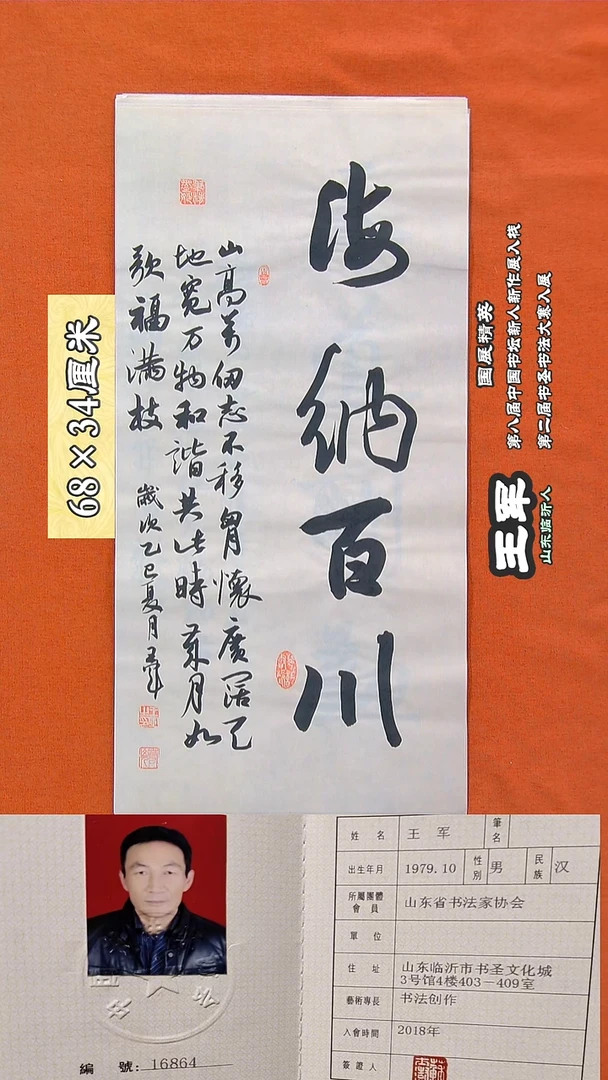 海纳百川
山高萬仞志不移胷懷廣闊天
地寬万物和諧共此時歲月如
歌福滿枝
歲次乙巳夏月王軍
68×34厘米
国展精英
第八届中国书坛新人新作展入
第二届书圣书法大赛入展
王军
山东临沂人
編 號:16864
姓名 王 军 筆名
出生年月 1979.10 性別 男 民族 汉
所屬團體會員 山东省书法家协会
單位
住址 山东临沂市书圣文化城
3号馆4楼403-409室
藝術專長 书法创作
入會時間 2018年
簽證人